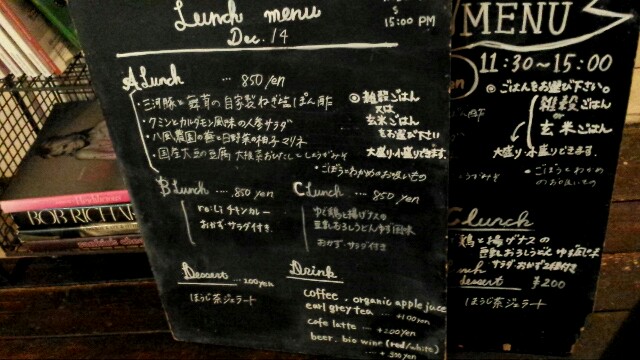 Lunch menu
Dec. 14
15:00 PM
A Lunch ... 850 yen
・三河豚と舞茸の自家製ねぎ塩ぽん酢
・クミンとカルダモン風味の人参サラダ
・八風農園の蕪と日野菜の柚子マリネ
・国産大豆の豆腐 大根菜おひたし
◎雑穀ごはん
又は
玄米ごはん
をお選び下さい
大盛り・小盛りできます。
・ごぼうとわかめのお吸いもの
B Lunch ... 850 yen
re:Li チキンカレー
おかず・サラダ付き
C Lunch ... 850 yen
ゆで鶏と揚げナスの
豆乳おろしうどん ゆず風味
おかず・サラダ付き
Dessert ... 200 yen
ほうじ茶ジェラート
Drink
coffee . organic apple juce
earl grey tea ... +100 yen
cafe latte ... +200 yen
beer. bio wine (red/white)
... +300 yen
MENU
11:30〜15:00
◎ごはんをお選び下さい。
雑穀ごはん
or
玄米ごはん
大盛り・小盛りできます。
・ごぼうとわかめ
のお吸いもの
C Lunch
鶏と揚げナスの
豆乳おろしうどん ゆず風味
サラダ・おかず2種付き
dessert ¥200
ほうじ茶ジェラート
BOB RICHARDSON